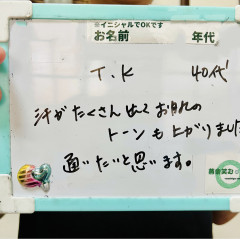 ※イニシャルでOKです
お名前 年代
T.K 40代
汗がたくさん出てお肌の
トーンも上がりました
通いたいと思います。